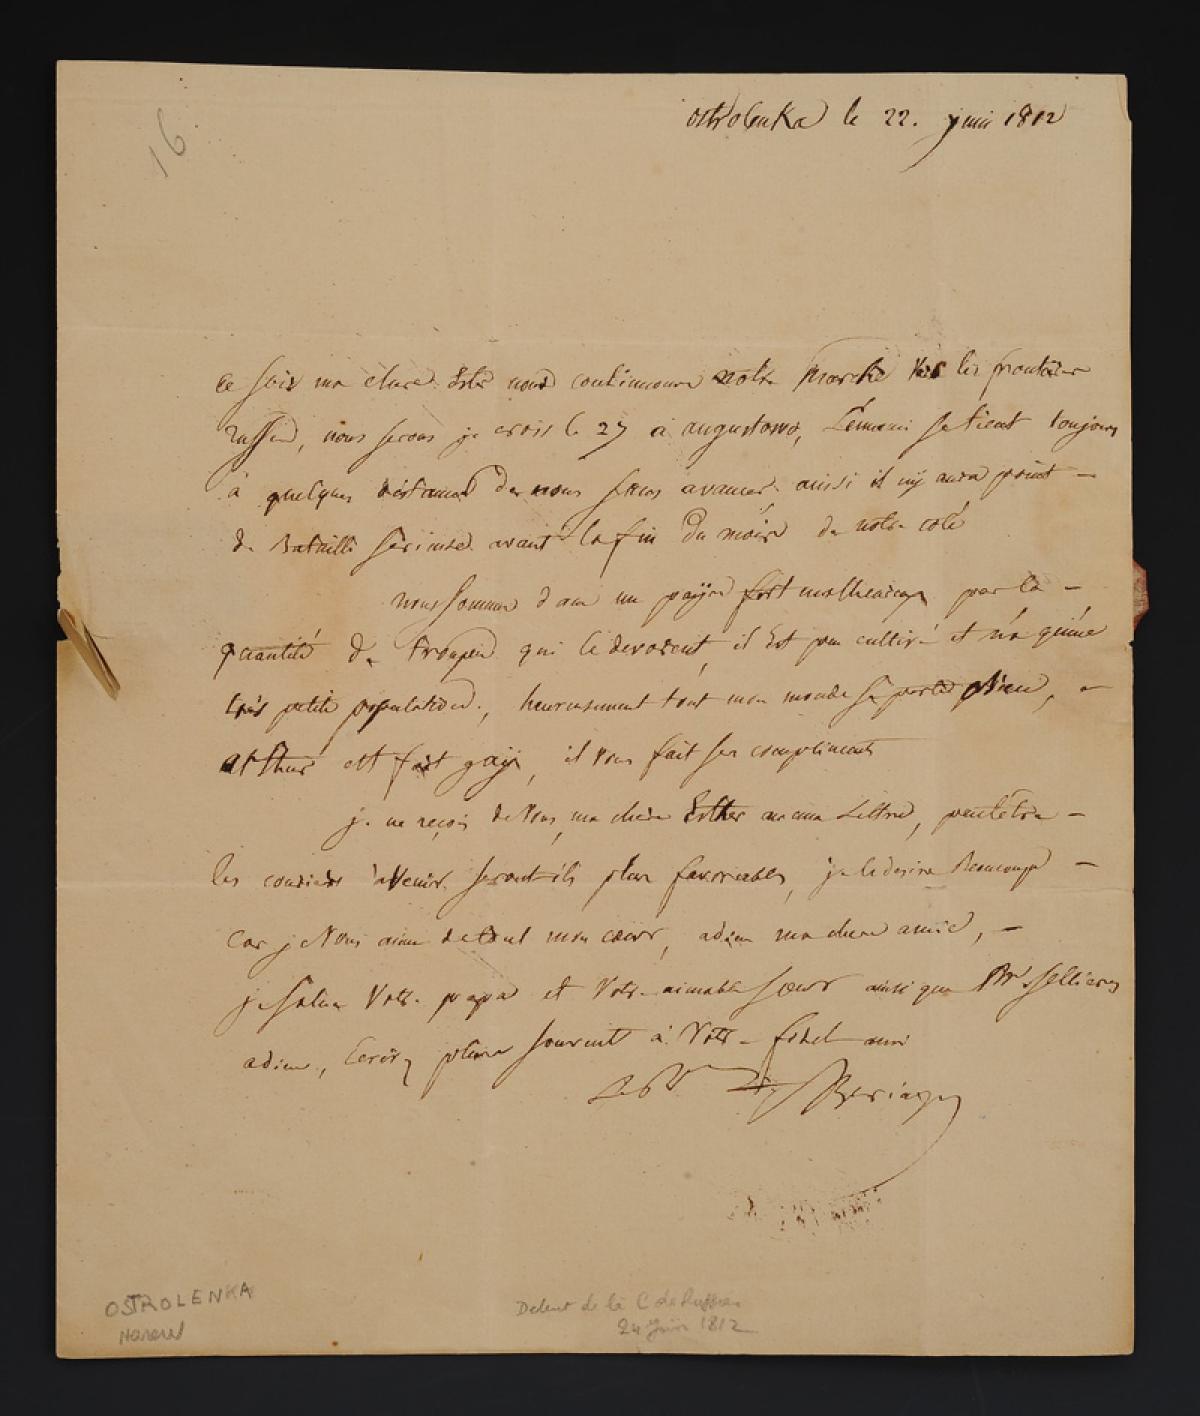 16
Ostrolenka le 22. juin 1812
ce soir ma chere Ester nous continuons notre marche vers les frontieres
russes, nous serons je crois le 27 à augustowo, l'ennemi se tient toujours
à quelques distances de nous sans avancer. ainsi il n'y aura point —
de Bataille serieuse avant la fin du moins de notre coté
nous sommes dans un payse fort malheureux par la —
quantité de troupes qui le devorent, il est peu cultivé et n'a qu'une
très petite population, heureusement tout mon monde se porte bien, —
arthur est fort gaye, il vous fait ses compliments
je ne reçois de vous, ma chere Esther aucune Lettre, peut être —
les couriers à venir seront-ils plus favorables, je le desire Beaucoup —
car je vous aime de tout mon cœur, adieu ma chere amie, —
je salue votre papa et votre aimable sœur ainsi que Mr Sellieres
adieu, Ecrivez plus souvent à votre fidel ami
OSTROLENKA
Debut de la C de Russie
24 Juin 1812